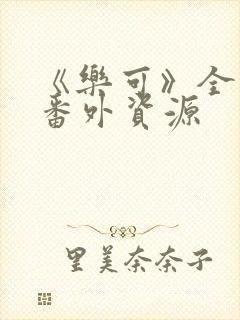 《樂可》全
番外資源
里美奈奈子